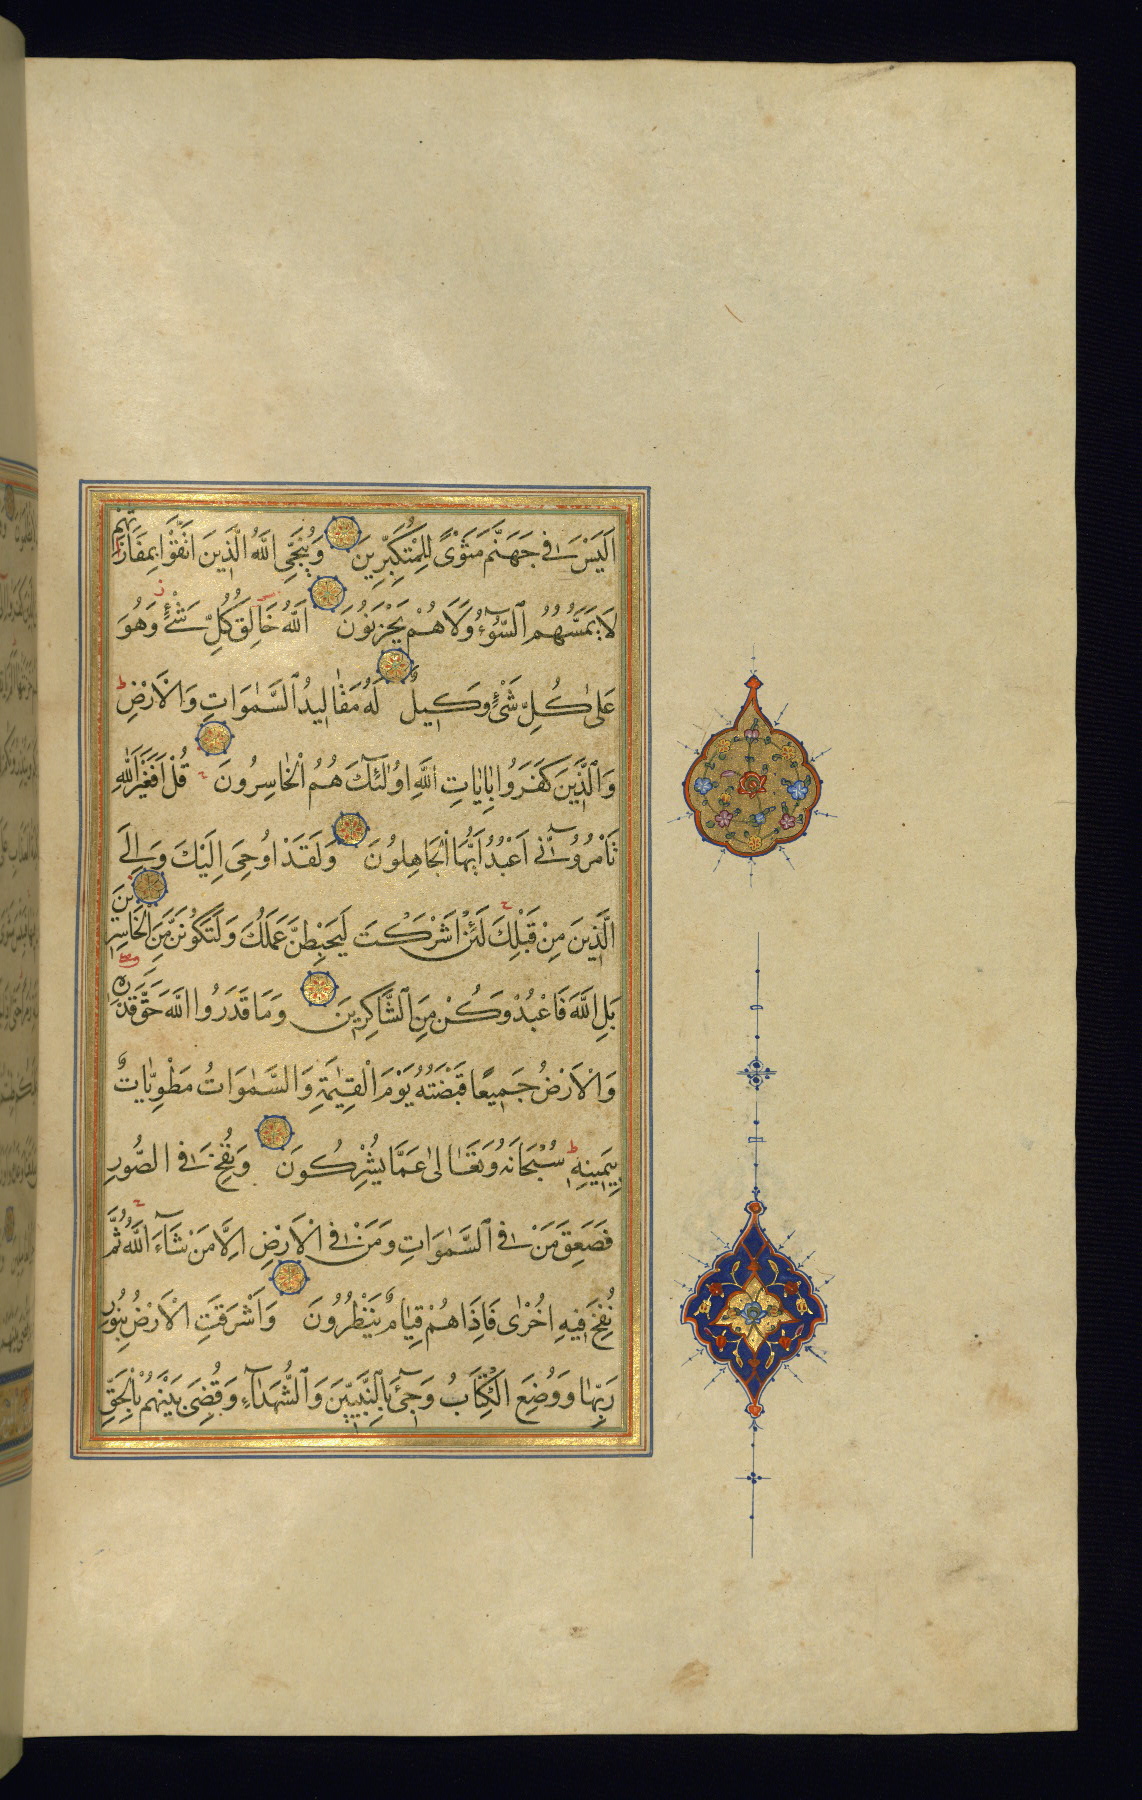 اَلَيْسَ فِى جَهَنَّمَ مَثْوًى لِلْمُتَكَبِّرِينَ وَيُنَجِّى اللّٰهُ الَّذِينَ اتَّقَوْا بِمَفَازَتِهِمْ
لَا يَمَسُّهُمُ السُّوۤءُ وَلَا هُمْ يَحْزَنُونَ اَللّٰهُ خَالِقُ كُلِّ شَىْءٍ وَهُوَ
عَلٰى كُلِّ شَىْءٍ وَكِيلٌ لَهُ مَقَالِيدُ السَّمٰوَاتِ وَالْاَرْضِ
وَالَّذِينَ كَفَرُوا بِاٰيَاتِ اللّٰهِ اُولٰۤئِكَ هُمُ الْخَاسِرُونَ قُلْ اَفَغَيْرَ اللّٰهِ
تَأْمُرُوۤنِّى اَعْبُدُ اَيُّهَا الْجَاهِلُونَ وَلَقَدْ اُوحِىَ اِلَيْكَ وَاِلَى
الَّذِينَ مِنْ قَبْلِكَ لَئِنْ اَشْرَكْتَ لَيَحْبَطَنَّ عَمَلُكَ وَلَتَكُونَنَّ مِنَ الْخَاسِرِينَ
بَلِ اللّٰهَ فَاعْبُدْ وَكُنْ مِنَ الشَّاكِرِينَ وَمَا قَدَرُوا اللّٰهَ حَقَّ قَدْرِهِ
وَالْاَرْضُ جَمِيعًا قَبْضَتُهُ يَوْمَ الْقِيٰمَةِ وَالسَّمٰوَاتُ مَطْوِيَّاتٌ
بِيَمِينِهِ سُبْحَانَهُ وَتَعَالٰى عَمَّا يُشْرِكُونَ وَنُفِخَ فِى الصُّورِ
فَصَعِقَ مَنْ فِى السَّمٰوَاتِ وَمَنْ فِى الْاَرْضِ اِلَّا مَنْ شَاۤءَ اللّٰهُ ثُمَّ
نُفِخَ فِيهِ اُخْرٰى فَاِذَا هُمْ قِيَامٌ يَنْظُرُونَ وَاَشْرَقَتِ الْاَرْضُ بِنُورِ
رَبِّهَا وَوُضِعَ الْكِتَابُ وَجِۤىءَ بِالنَّبِيِّينَ وَالشُّهَدَاۤءِ وَقُضِىَ بَيْنَهُمْ بِالْحَقِّ